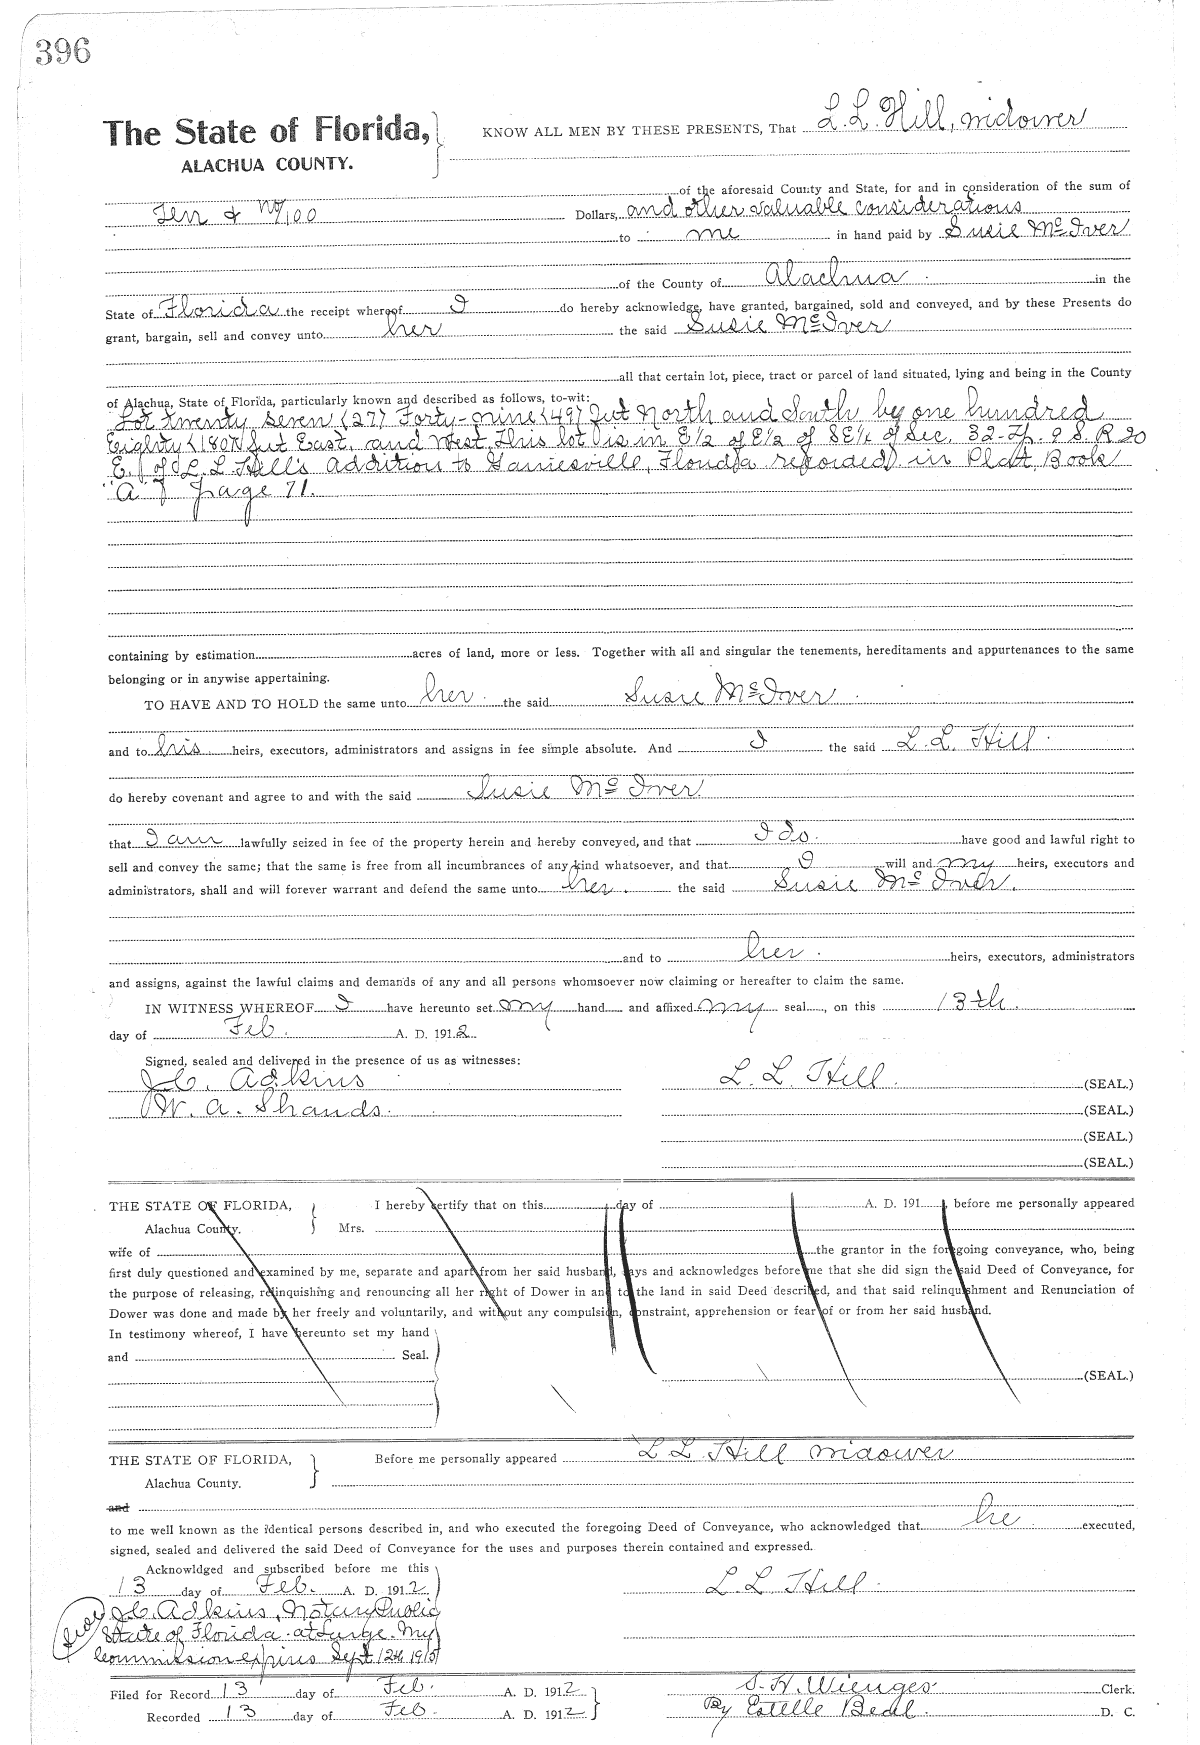 396
The State of Florida,
ALACHUA COUNTY.
KNOW ALL MEN BY THESE PRESENTS, That L. L. Hill, widower
of the aforesaid County and State, for and in consideration of the sum of
Ten & no/100 Dollars, and other valuable considerations
to me in hand paid by Susie McIver
of the County of Alachua in the
State of Florida the receipt whereof I do hereby acknowledge, have granted, bargained, sold and conveyed, and by these Presents do
grant, bargain, sell and convey unto her the said Susie McIver
all that certain lot, piece, tract or parcel of land situated, lying and being in the County
of Alachua, State of Florida, particularly known and described as follows, to-wit:
Lot twenty seven (27) Forty-nine (49) feet North and South by one hundred
Eighty (180) feet East, and West, This lot is in E 1/2 of E 1/2 of SE 1/4 of Sec. 32-Tp. 9 S. R 20
E. of L. L. Hill's addition to Gainesville, Florida recorded in Plat Book
"A" page 71.
containing by estimation acres of land, more or less. Together with all and singular the tenements, hereditaments and appurtenances to the same
belonging or in anywise appertaining.
TO HAVE AND TO HOLD the same unto her the said Susie McIver
and to his heirs, executors, administrators and assigns in fee simple absolute. And I the said L. L. Hill
do hereby covenant and agree to and with the said Susie McIver
that I am lawfully seized in fee of the property herein and hereby conveyed, and that I do have good and lawful right to
sell and convey the same; that the same is free from all incumbrances of any kind whatsoever, and that I will and my heirs, executors and
administrators, shall and will forever warrant and defend the same unto her the said Susie McIver.
and to her heirs, executors, administrators
and assigns, against the lawful claims and demands of any and all persons whomsoever now claiming or hereafter to claim the same.
IN WITNESS WHEREOF I have hereunto set my hand and affixed my seal, on this 13th.
day of Feb. A. D. 1912
Signed, sealed and delivered in the presence of us as witnesses:
J.C. Adkins L. L. Hill (SEAL.)
W. A. Shands. (SEAL.)
(SEAL.)
(SEAL.)
THE STATE OF FLORIDA, I hereby certify that on this day of A. D. 191 , before me personally appeared
Alachua County. Mrs.
wife of the grantor in the foregoing conveyance, who, being
first duly questioned and examined by me, separate and apart from her said husband, says and acknowledges before me that she did sign the said Deed of Conveyance, for
the purpose of releasing, relinquishing and renouncing all her right of Dower in and to the land in said Deed described, and that said relinquishment and Renunciation of
Dower was done and made by her freely and voluntarily, and without any compulsion, constraint, apprehension or fear of or from her said husband.
In testimony whereof, I have hereunto set my hand
and Seal.
(SEAL.)
THE STATE OF FLORIDA, Before me personally appeared L L Hill widower
Alachua County.
and
to me well known as the identical persons described in, and who executed the foregoing Deed of Conveyance, who acknowledged that he executed,
signed, sealed and delivered the said Deed of Conveyance for the uses and purposes therein contained and expressed.
Acknowldged and subscribed before me this
13 day of Feb. A. D. 1912 L L Hill
J.C. Adkins, Notary Public
State of Florida at Large. My
Commission expires Sept 12th 1915
Filed for Record 13 day of Feb. A. D. 1912 S. H. Wienges Clerk.
Recorded 13 day of Feb. A. D. 1912 By Estelle Beal. D. C.